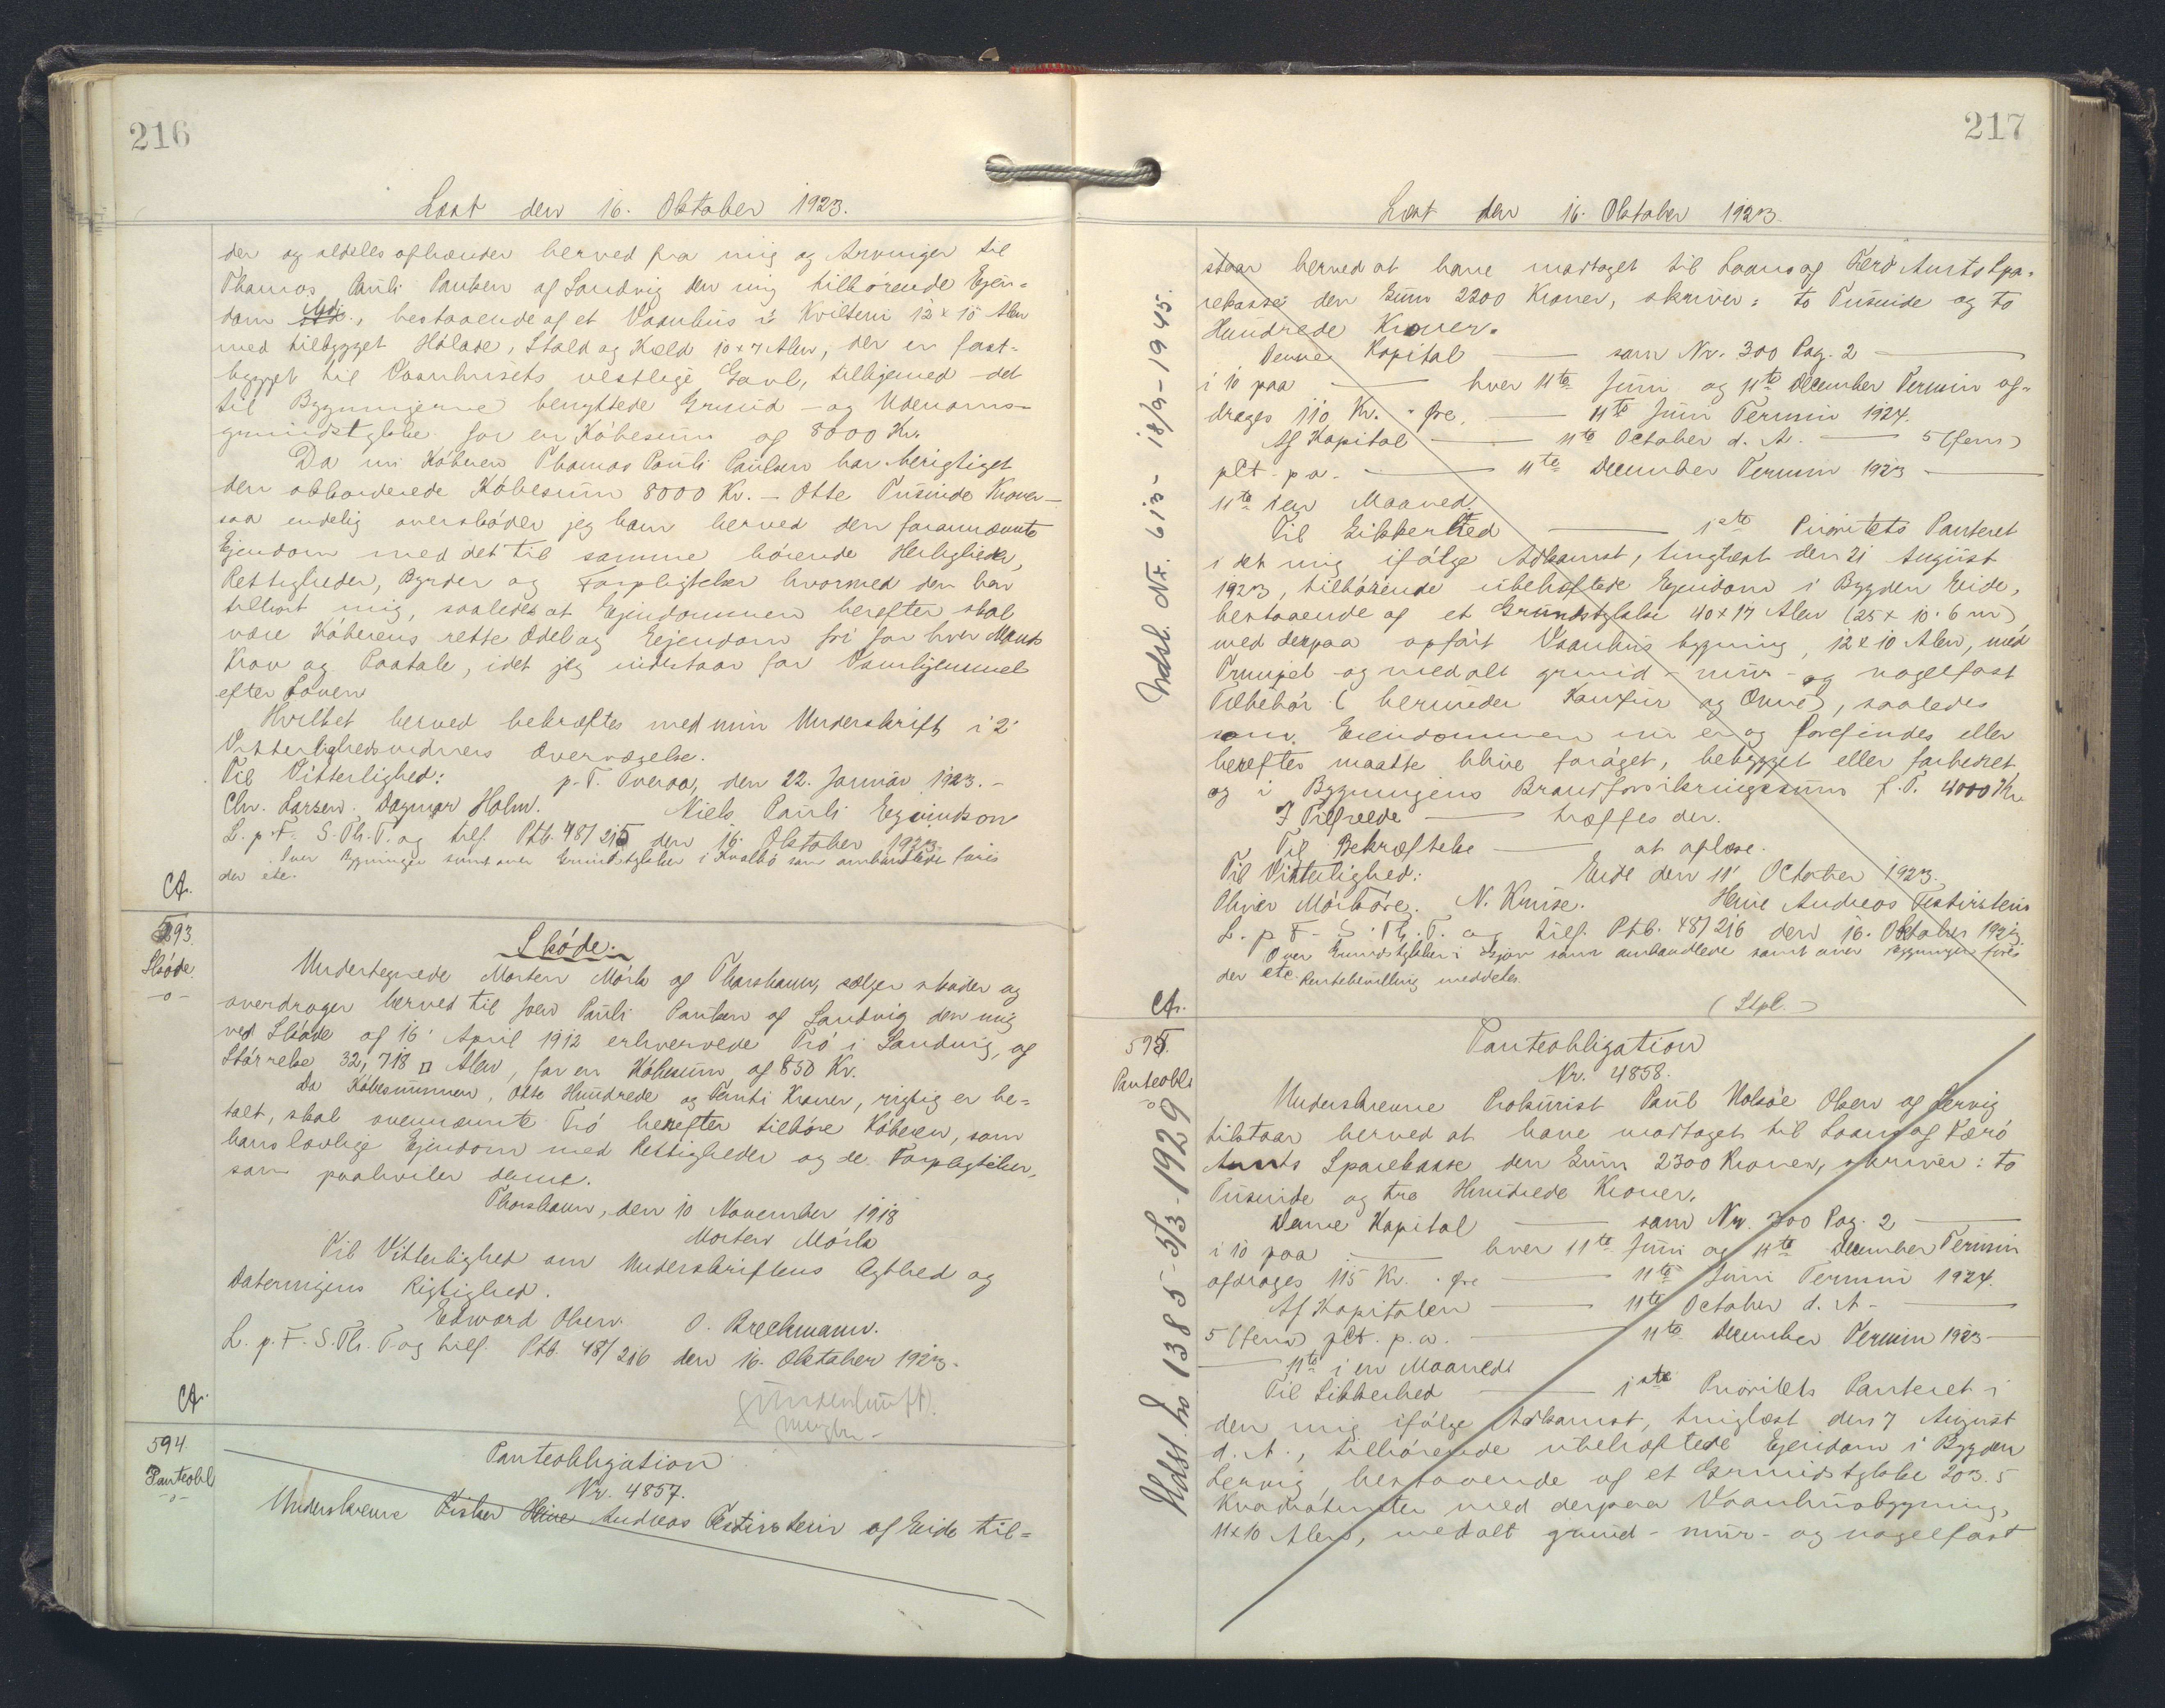 216
Læst den 16. Oktober 1923.
der og aldeles afhænder herved fra mig og Arvinger til
Thomas Pauli Paulsen af Sandvig den mig tilhørende Ejen=
dom, bestaaende af et Vaanhus i 12 x 10 Alen
med tilbygget Hølade, Stald og Kæld 10 x 7 Alen, der er fast=
bygget til Vaanhusets vestlige Gavl, tilligemed det
til Bygningerne benyttede Grund- og Udenoms-
grundstykke for en Købesum af 8000 Kr.
Da nu Køberen Thomas Pauli Paulsen har berigtiget
den akkorderede Købesum 8000 Kr. - Otte Tusinde Kroner -
saa endelig overskøder jeg ham herved den forannævnte
Ejendom med det til samme hørende Herligheder,
Rettigheder, Byrder og Forpligtelser hvormed den har
tilhørt mig, saaledes at Ejendommen herefter skal
være Køberens rette Odel og Eejendom fri for hver Mands
Krav og Paatale, idet jeg indestaar for Vanhjemmel
efter Loven
Hvilket herved bekræftes med min Underskrift i 2
Vitterlighedsvidners Overværelse.
Til Vitterlighed: p. T. Overaa, den 22. Januar 1923. -
Chr. Larsen. Dagmar Holm. Niels Pauli Egvinson
L. p. F. S. Th. T. og tilf. Ptb. 48/215 den 16. Oktober 1923.
Over Bygningen samt over Grundstykket i Kvalbø som ombandlede føres
der etc.
CA.
593.
Skøde.
-o-
Skøde.
Undertegnede Morten Mörk af Thorshavn, sælger skøder og
overdrager herved til Joen Pauli Paulsen af Sandvig den mig
ved Skøde af 16' April 1912 erhvervede Trö i Sandvig, af
Størrelse 32,718 □ Alen, for en Købesum af 850 Kr.
Da Købesummen, Otte Hundrede og Femti Kroner, rigtig er be=
talt, skal ovennævnte Trö herefter tilhøre Køberen, som
hans lovlige Ejendom med Rettigheder og de Forpligtelser,
som paahviler denne.
Thorshavn, den 10 November 1918
Morten Mörk
Til Vitterlighed om Underskriftens Ægthed og
Dateringens Rigtighed.
Edward Olsen. O. Brechmann.
L. p. F. S. Th. T. og tilf. Ptb. 48/216 den 16. Oktober 1923.
CA.
594.
Panteobl
-o-
Panteobligation
Nr. 4857.
Underskrevne Fisker Heine Andreas Festirstein af Eide til=
217
Læst den 16. Oktober 1923.
Udsl. Nr. 613 - 18/9-1945.
staar herved at have modtaget til Laans af Færø Amts Spa=
rekasse den Sum 2200 Kroner, skriver: to Tusinde og to
Hundrede Kroner.
Denne Kapital — som Nr. 300 Pag. 2 —
i 10 paa — hver 11te Juni og 11te December Termin af=
drages 110 Kr. " Øre. — 11te Juni Termin 1924.
Af Kapital — 11te October d. A. — 5 (fem)
pCt. p.a. — 11te December Termin 1923 —
11te i en Maaned.
Til Sikkerhed — 1ste Prioritets Panteret
i det mig ifølge Adkomst, tinglæst den 21 August
1923, tilhørende ubehæftede Ejendom i Bygden Eide,
bestaaende af et Grundstykke 40 x 17 Alen (25 x 10.6 m)
med derpaa opført Vaanhus bygning, 12 x 10 Alen, med
og med alt grund- mur- og nagelfast
Tilbehør (herunder Komfur og Ovne), saaledes
som Eiendommen nu er og forefindes eller
herefter maatte blive forøget, bebygget eller forbedret
og i Bygningens Brandforsikringssum f. T. 4000 Kr.
I Tilfælde — træffes der.
Til Bekræftelse — at aflæse.
Til Vitterlighed: Eide den 11' October 1923.
Oliver Mörköre. N. Kruse. Heine Andreas Festirstein
L. p. F. S. Th. T. og tilf. Ptb. 48/216 den 16. Oktober 1923
Over Grundstykket i som ombandlede samt over Bygningen føres
der etc. Rentebevilling meddeles.
CA. (Stpl.)
595.
Panteobl
-o-
Udsl. No 1385 - 5/3-1929
Panteobligation
Nr. 4858.
Underskrevne Prokurist Paul Holsøe Olsen af Lervig
tilstaar herved at have modtaget til Laans af Færø
Amts Sparekasse den Sum 2300 Kroner, skriver: to
Tusinde og tre Hundrede Kroner.
Denne Kapital — som Nr. 300 Pag. 2 —
i 10 paa — hver 11te Juni og 11te December Termin
afdrages 115 Kr. " Øre — 11te Juni Termin 1924.
Af Kapitalen — 11te October d. A. —
5 (fem) pCt. p.a. — 11te December Termin 1923 —
— 11te i en Maaned
Til Sikkerhed — 1ste Prioritets Panteret i
den mig ifølge Adkomst, tinglæst den 7 August
d. A., tilhørende ubehæftede Ejendom i Bygden
Lervig, bestaaende af et Grundstykke 203.5
Kvadratmeter med derpaa Vaanhusbygning,
11 x 10 Alen, med alt grund- mur- og nagelfast